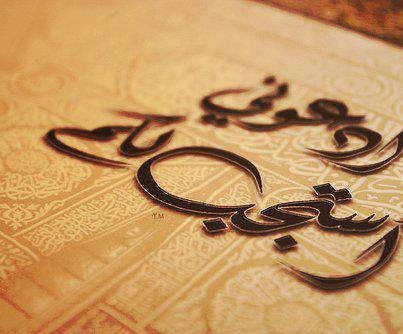 ادعوني
استجب لكم
T.M